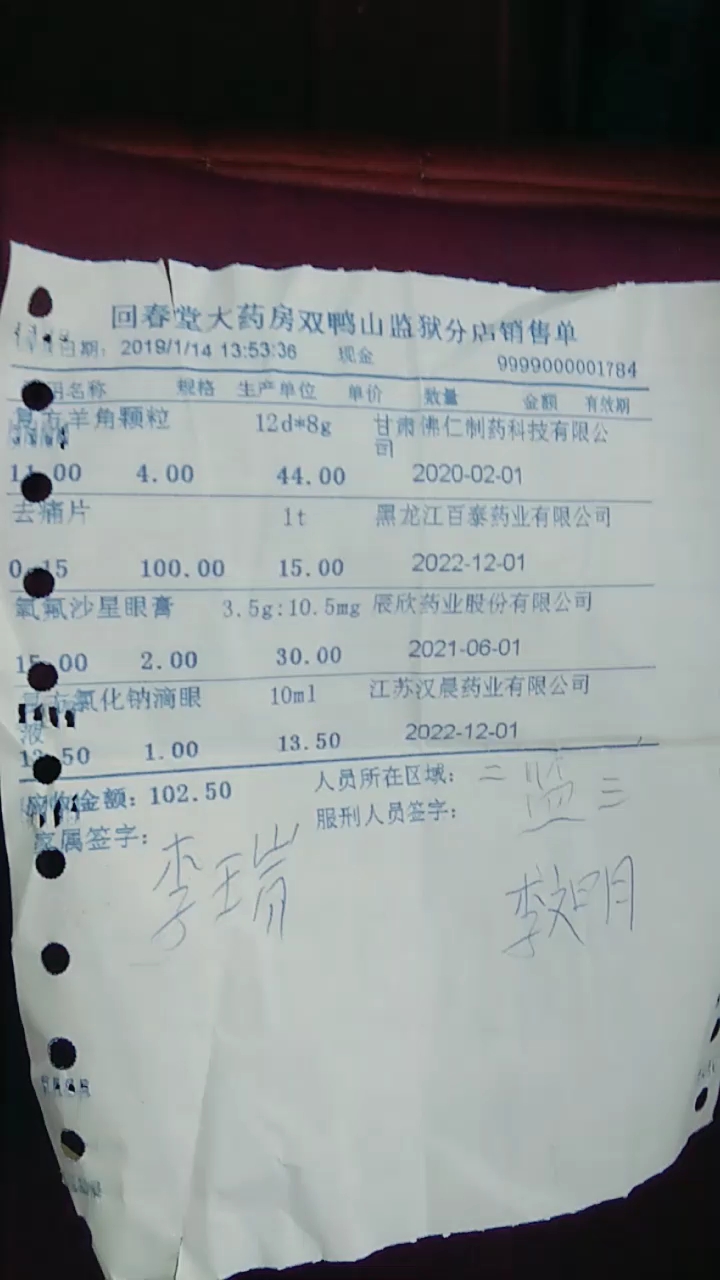 回春堂大药房双鸭山监狱分店销售单
日期: 2019/1/14 13:53:36 现金 9999000001784
用名称 规格 生产单位 单价 数量 金额 有效期
复方羊角颗粒 12d*8g 甘肃佛仁制药科技有限公
司
11.00 4.00 44.00 2020-02-01
去痛片 1t 黑龙江百泰药业有限公司
0.15 100.00 15.00 2022-12-01
氧氟沙星眼膏 3.5g:10.5mg 辰欣药业股份有限公司
15.00 2.00 30.00 2021-06-01
复方氯化钠滴眼 10ml 江苏汉晨药业有限公司
液
13.50 1.00 13.50 2022-12-01
应收金额: 102.50 人员所在区域: 二监三
家属签字: 服刑人员签字:
李玉岩 李文明